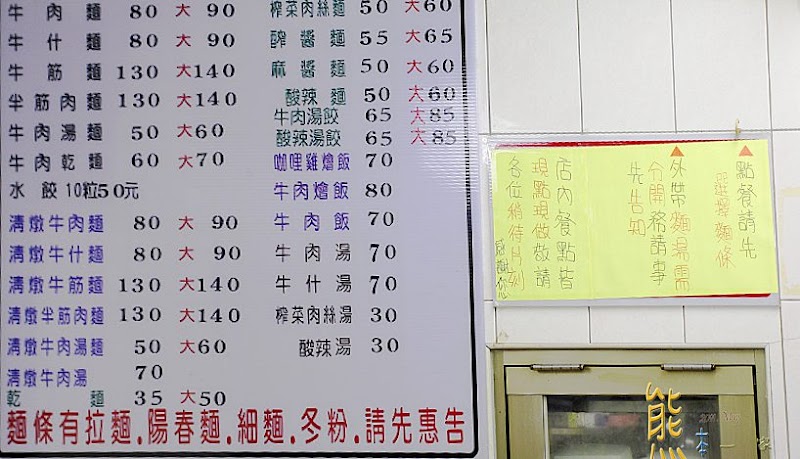 牛肉麵 80 大 90
牛什麵 80 大 90
牛筋麵 130 大140
半筋肉麵 130 大140
牛肉湯麵 50 大60
牛肉乾麵 60 大70
水餃10粒50元
清燉牛肉麵 80 大 90
清燉牛什麵 80 大 90
清燉牛筋麵 130 大140
清燉半筋肉麵 130 大140
清燉牛肉湯麵 50 大60
清燉牛肉湯 70
乾麵 35 大50
榨菜肉絲麵 50 大60
醡醬麵 55 大65
麻醬麵 50 大60
酸辣麵 50 大60
牛肉湯餃 65 大85
酸辣湯餃 65 大85
咖哩雞燴飯 70
牛肉燴飯 80
牛肉飯 70
牛肉湯 70
牛什湯 70
榨菜肉絲湯 30
酸辣湯 30
麵條有拉麵.陽春麵.細麵.冬粉.請先惠告
▲點餐請先
選擇麵條
▲外帶麵湯需
分開務請事
先告知
店內餐點皆
現點現做敬請
各位稍待片刻
感謝您
熊